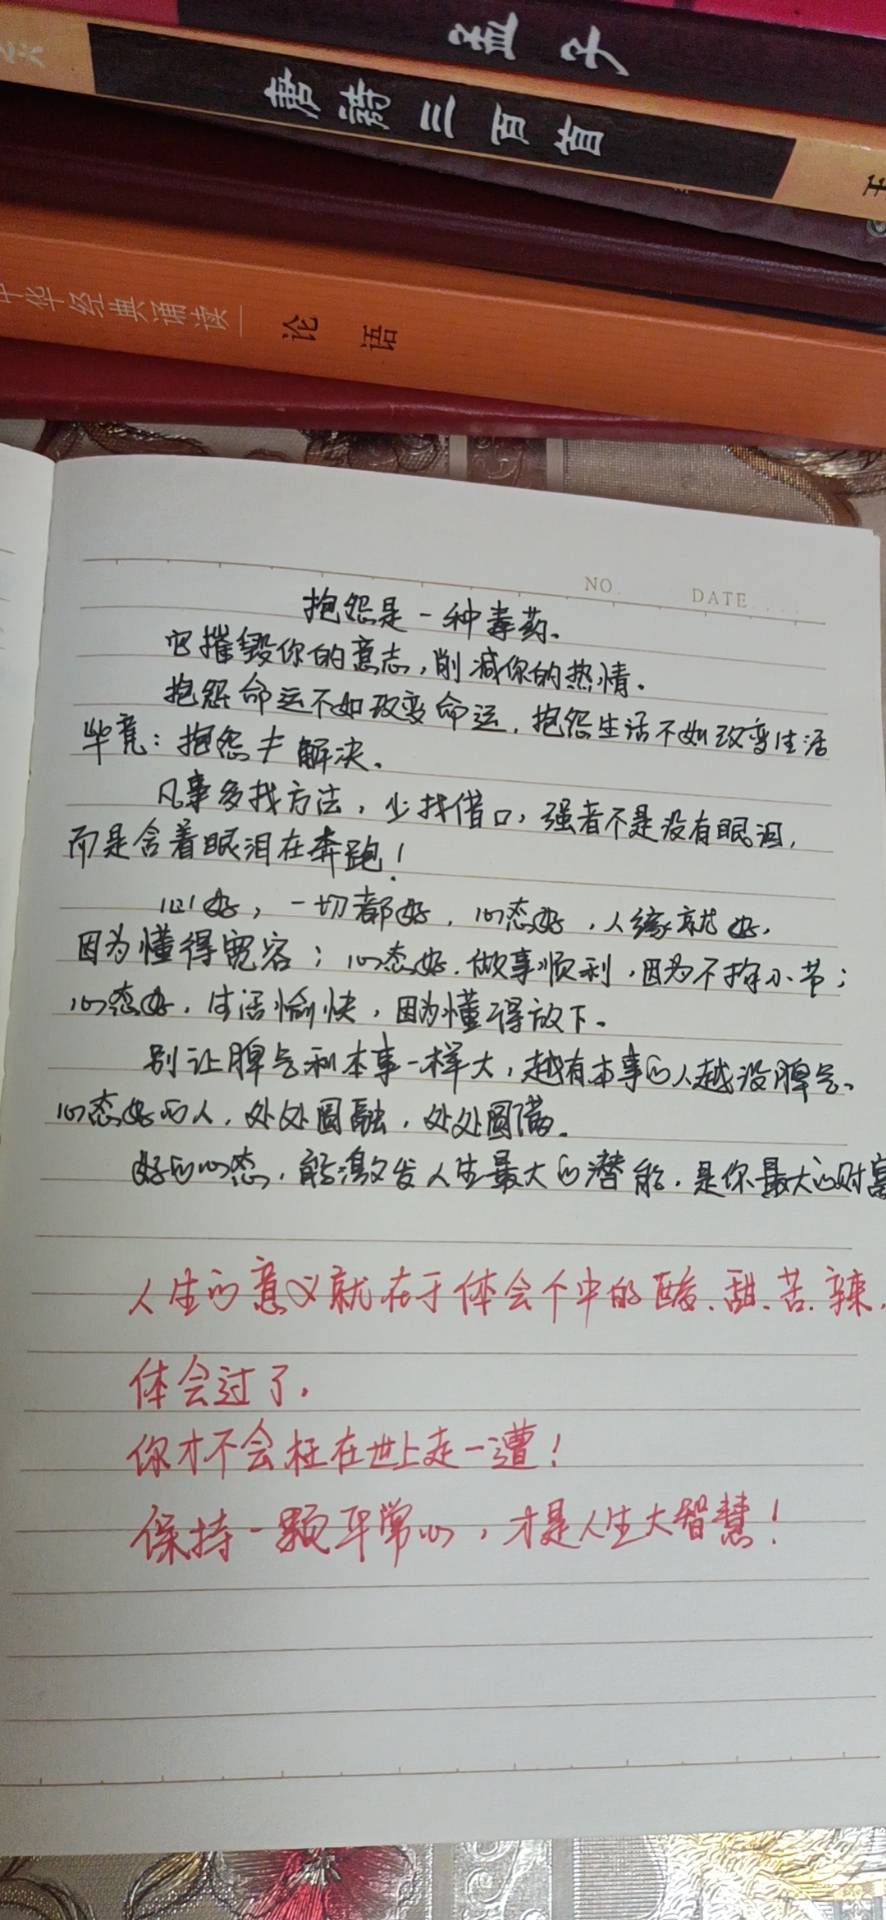 孟子
唐诗三百首
王
中华经典诵读 论语
NO. DATE
抱怨是一种毒药。
它摧毁你的意志,削减你的热情。
抱怨命运不如改变命运,抱怨生活不如改变生活
毕竟:抱怨≠解决。
凡事多找方法,少找借口,强者不是没有眼泪,
而是含着眼泪在奔跑!
心好,一切都好,心态好,人缘就好,
因为懂得宽容;心态好,做事顺利,因为不拘小节;
心态好,生活愉快,因为懂得放下。
别让脾气和本事一样大,越有本事的人越没脾气。
心态好的人,处处圆融,处处圆满。
好的心态,能激发人生最大的潜能,是你最大的财富
人生的意义就在于体会个中的酸、甜、苦、辣,
体会过了,
你才不会枉在世上走一遭!
保持一颗平常心,才是人生大智慧!